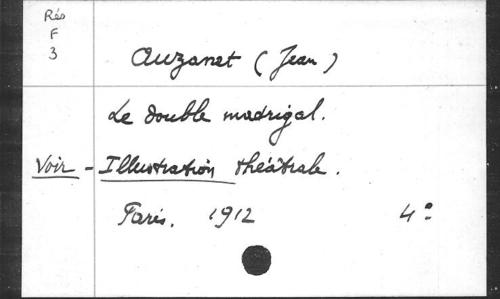 Rés
F
3
Auzanet (Jean)
Le double madrigal.
Voir - Illustration théâtrale.
Paris. 1912 4º